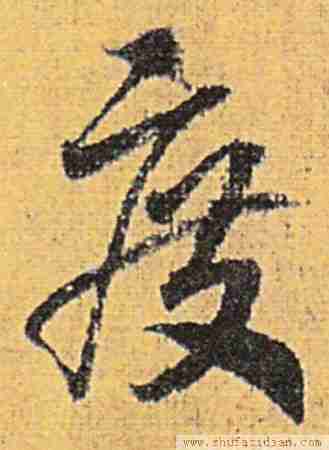 度
www.shufazidian.com